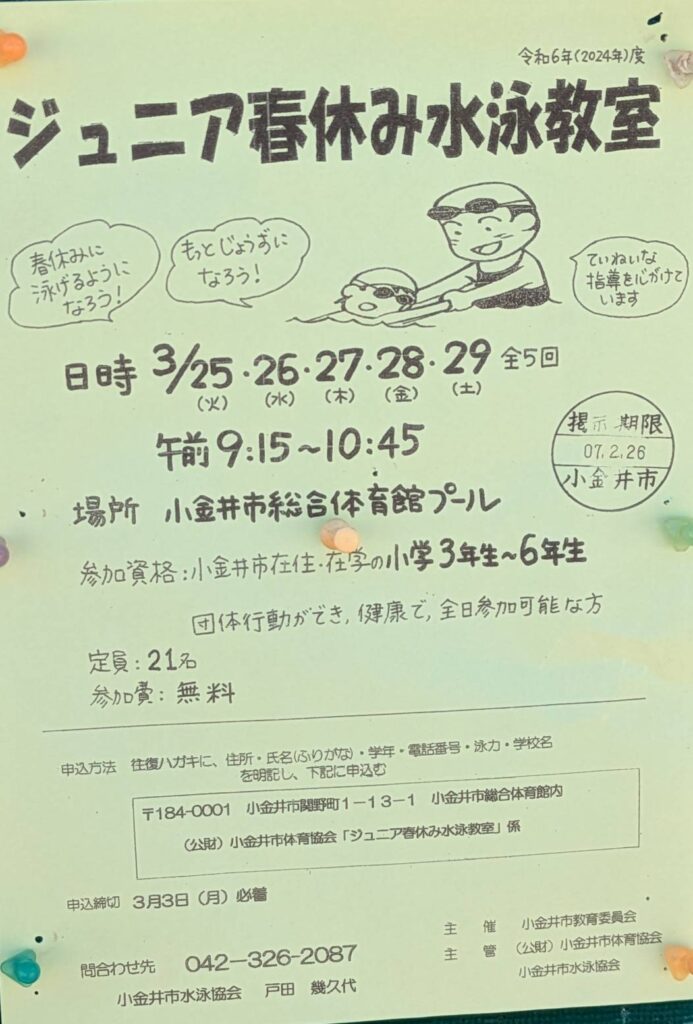 令和6年(2024年)度
ジュニア春休み水泳教室
春休みに
泳げるように
なろう!
もっとじょうずに
なろう!
ていねいな
指導を心がけて
います
日時 3/25・26・27・28・29 全5回
(火) (水) (木) (金) (土)
午前 9:15~10:45
掲示期限
07.2.26
小金井市
場所 小金井市総合体育館プール
参加資格:小金井市在住・在学の小学3年生~6年生
団体行動ができ,健康で,全日参加可能な方
定員:21名
参加費:無料
申込方法 往復ハガキに、住所・氏名(ふりがな)・学年・電話番号・泳力・学校名
を明記し、下記に申込む
〒184-0001 小金井市関野町1-13-1 小金井市総合体育館内
(公財)小金井市体育協会「ジュニア春休み水泳教室」係
申込締切 3月3日(月)必着
主催 小金井市教育委員会
主管 (公財)小金井市体育協会
小金井市水泳協会
問合わせ先 042-326-2087
小金井市水泳協会 戸田 幾久代